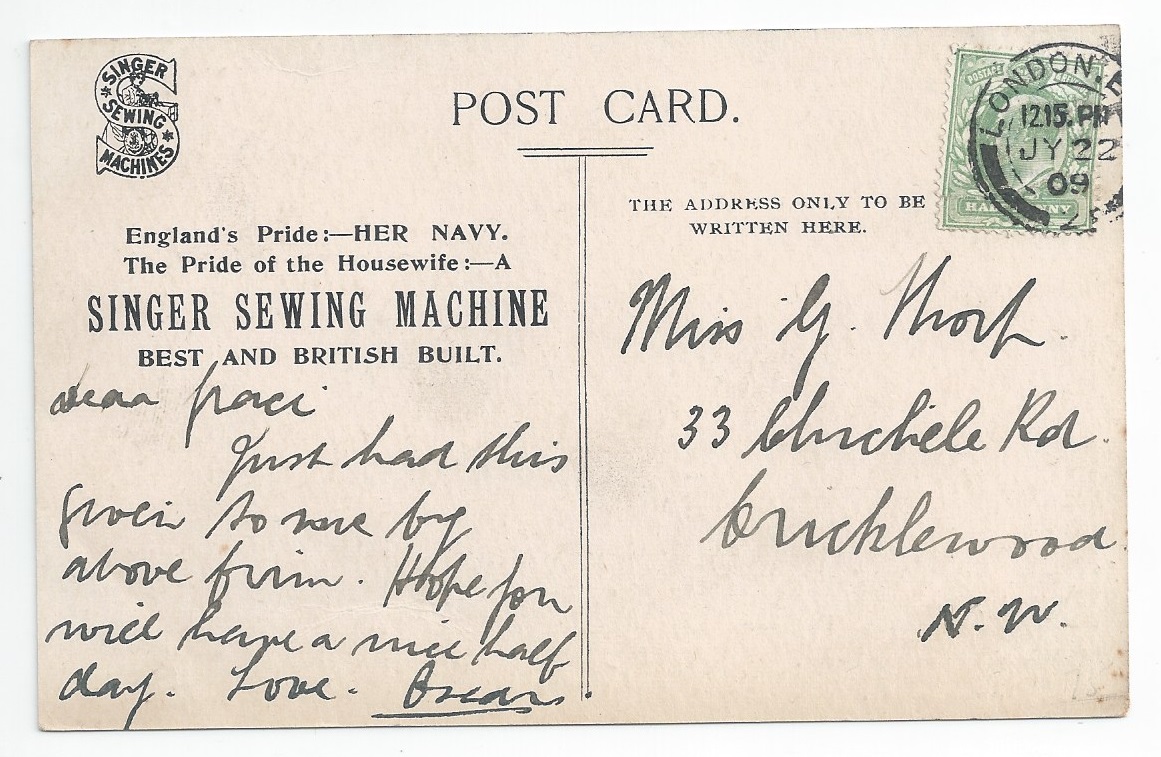 SINGER
SEWING
MACHINES
POST CARD.
POSTAGE
HALFPENNY
LONDON. E
12.15. PM
JY 22
09
THE ADDRESS ONLY TO BE
WRITTEN HERE.
England's Pride:—HER NAVY.
The Pride of the Housewife:—A
SINGER SEWING MACHINE
BEST AND BRITISH BUILT.
Dear Graci
Just had this
given to me by
above firm. Hope you
will have a nice half
day. Love. Oscar
Miss G. Thorp.
33 Chichele Rd.
Cricklewood.
N.W.